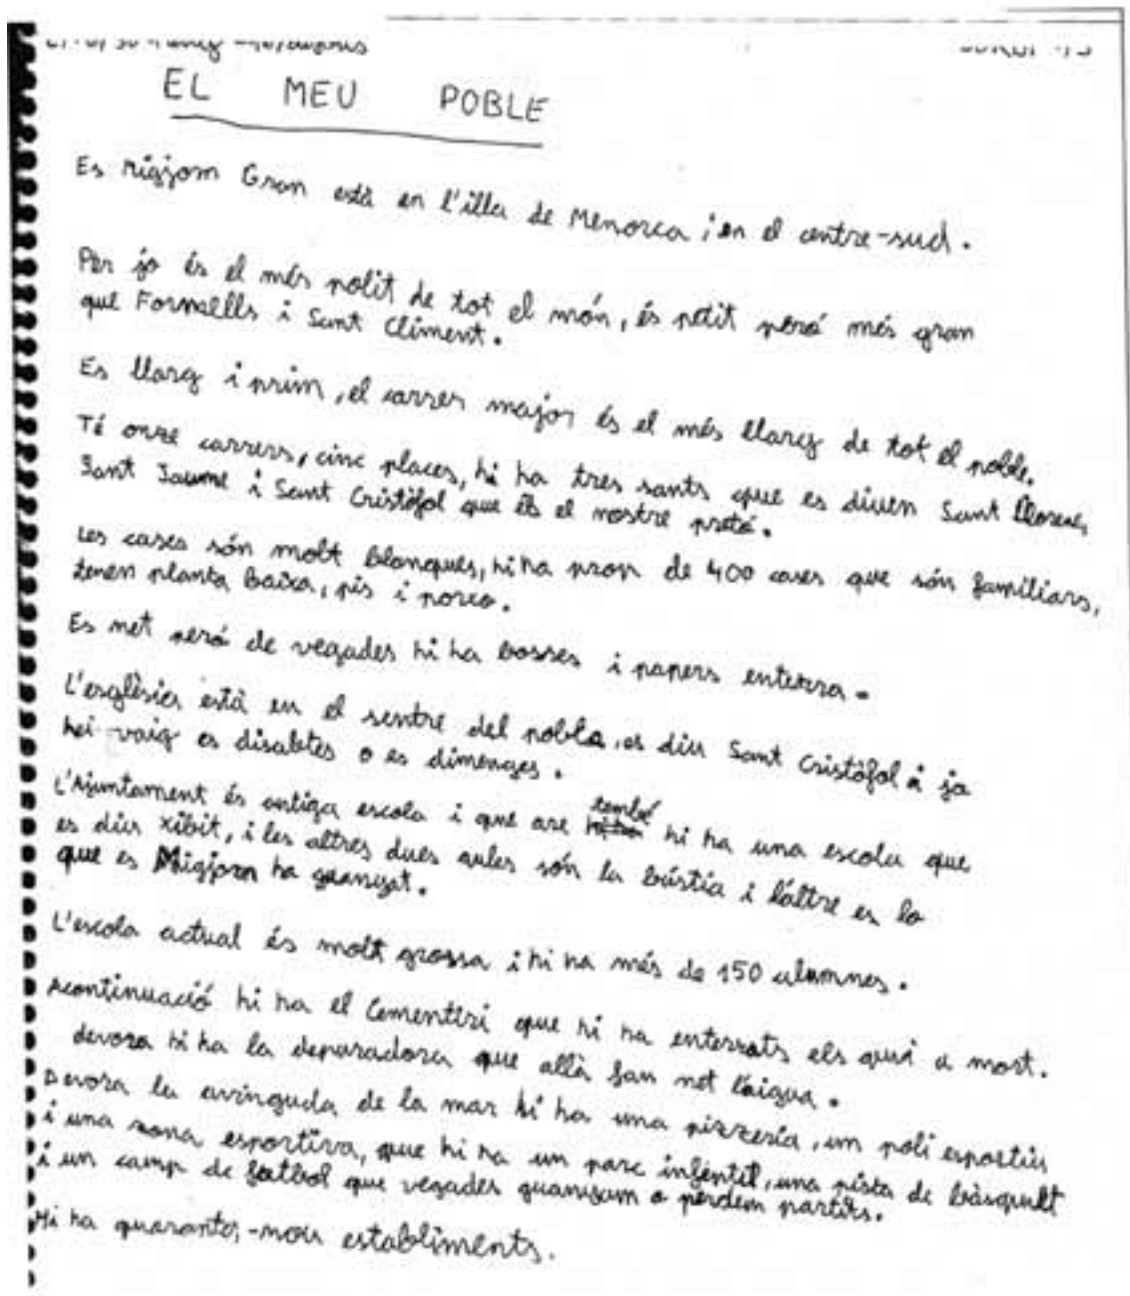 EL MEU POBLE
Es Migjorn Gran està en l'illa de Menorca i en el centre-sud.
Per jo és el més polit de tot el món, és petit peró més gran
que Fornells i Sant Climent.
Es llarg i prim, el carrer major és el més llarg de tot el poble.
Té onze carrers, cinc places, hi ha tres sants que es diuen Sant Llorenç,
Sant Jaume i Sant Cristòfol que és el nostre patró.
Les cases són molt blanques, hi ha prop de 400 cases que són familiars,
tenen planta baixa, pis i porxo.
Es net peró de vegades hi ha bosses i papers enterra.
L'esglèsia està en el sentre del poble, es diu Sant Cristòfol i jo
hei vaig es disabtes o es dimenges.
L'Ajuntament és antiga escola i que are també hi ha una escola que
es diu Xibit, i les altres dues aules són la bústia i l'altre es lo
que es Migjorn ha guanyat.
L'escola actual és molt grossa i hi ha més de 150 alumnes.
Acontinuació hi ha el Cementiri que hi ha enterrats els qui a mort.
devora hi ha la depuradora que allà fan net l'aigua.
Devora la avinguda de la mar hi ha una pizzeria, um poli esportiu
i una zona esportiva, que hi ha un parc infentil, una pista de bàsquet
i un camp de futbol que vegades guanyam o perdem partits.
Hi ha quaranta-nou establiments.